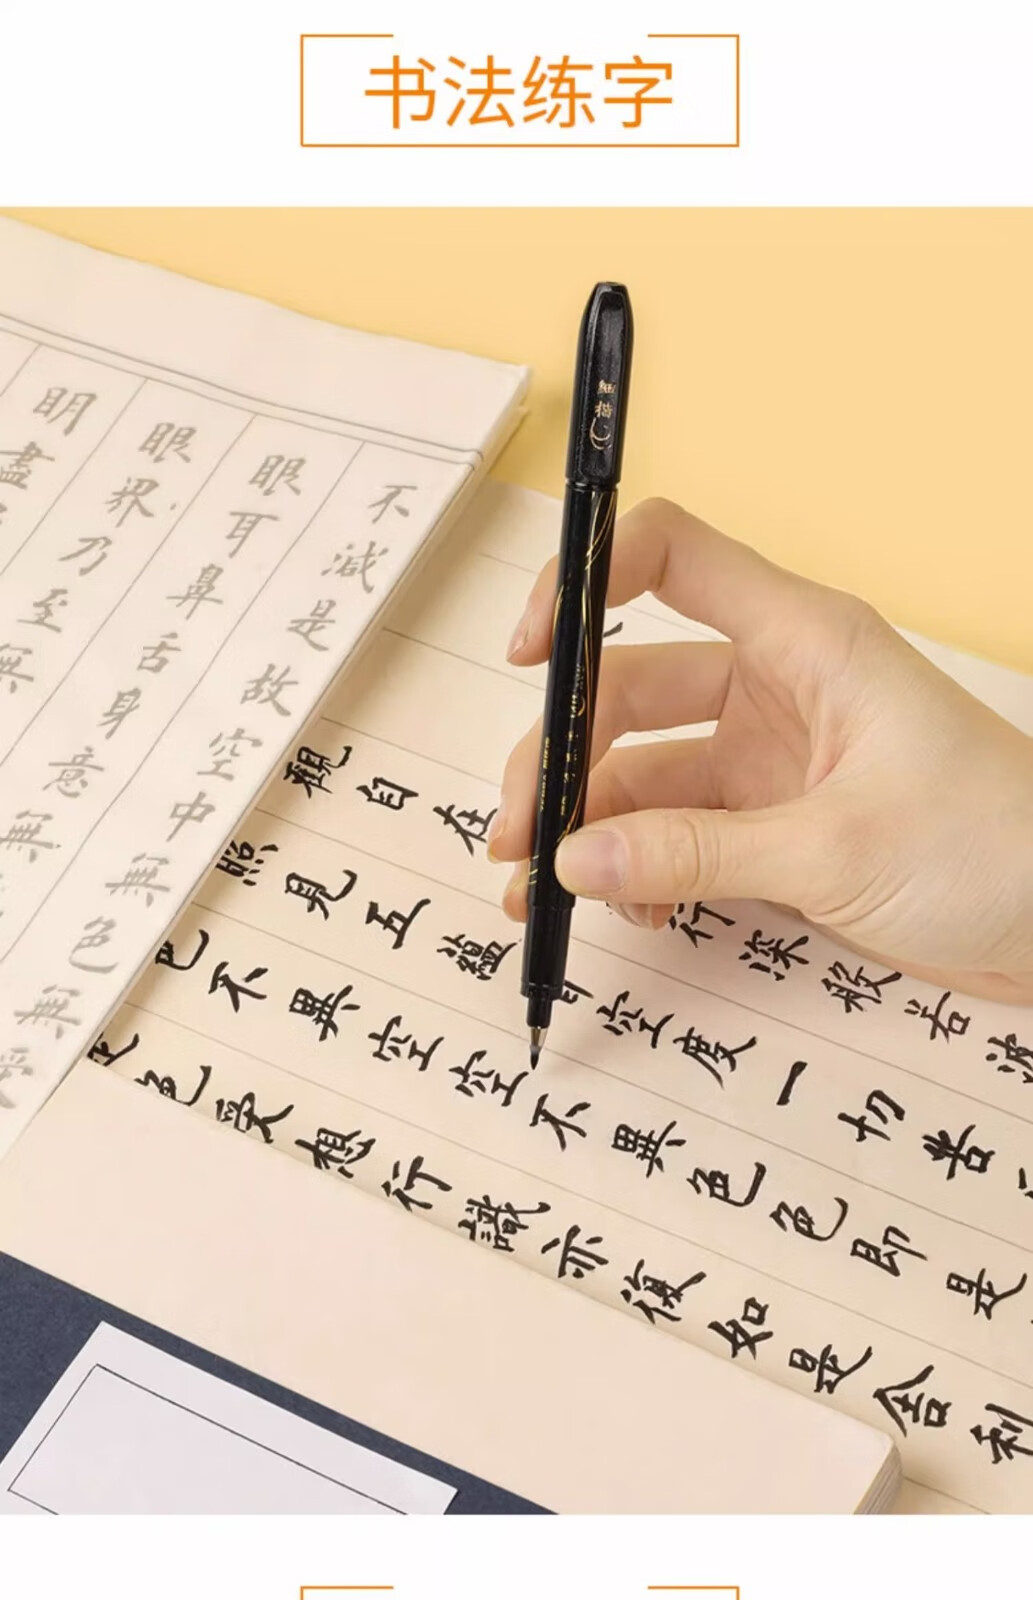 书法练字
細描
不減是故空中無色無受
眼耳鼻舌身意無
眼界乃至無
明盡
觀自在行深般若波
照見五蘊空度一切苦
色不異空空不異色色即是
色受想行識亦復如是舍利